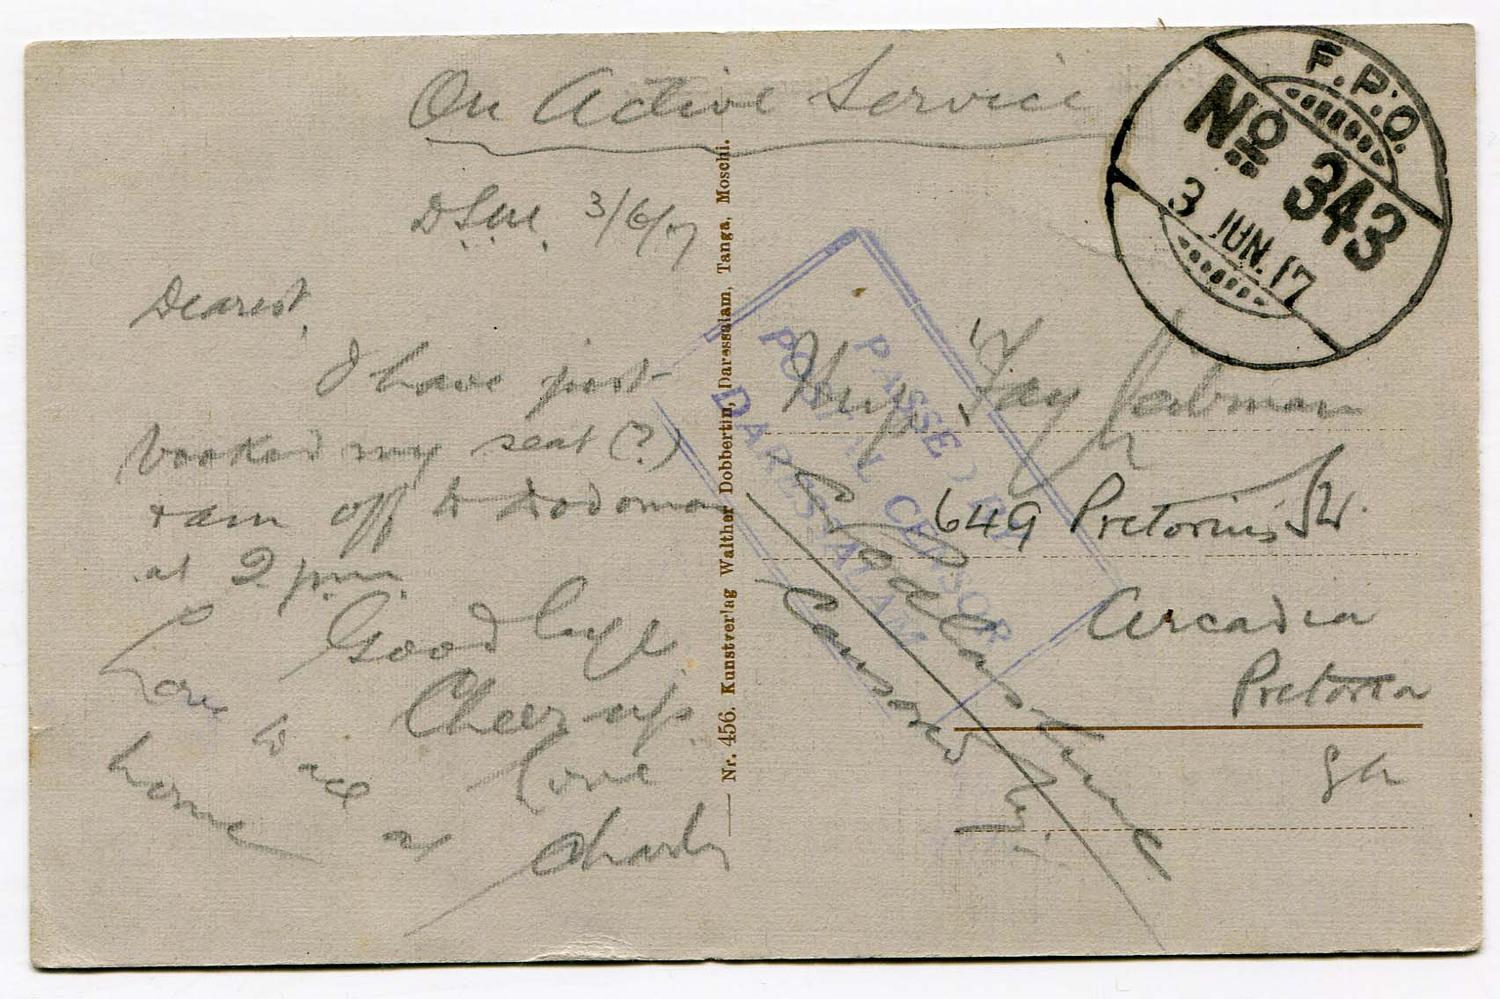 On Active Service
F.P.O.
No 343
3 JUN. 17
3/6/17
Dearest,
I have just
booked my seat (?)
+ am off to Dodoma
at 2 pm.
Good bye
Cheer up.
Love
Charls
Love to all at
home
Nr. 456. Kunstverlag Walther Dobbertin, Daressalam, Tanga, Moschi.
PASSED BY
POSTAL CENSOR
DARESSALAM
Fay
649 Pretorius St.
Arcadia
Pretoria
SA
Censored